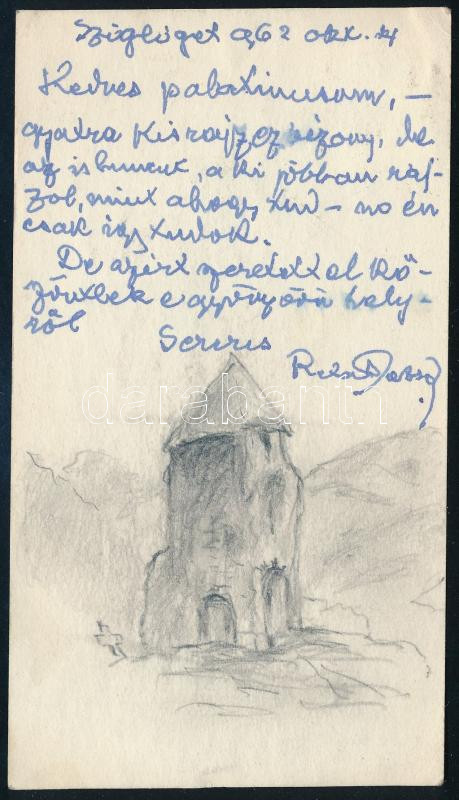 Szigliget 962 okt. 4
Kedves palatinusom, –
gyatra kis rajz ez bizony, de
az is bunkuk, a ki jobban raj-
zol, mint ahogy tud – no én
csak így tudok.
De azért szeretettel kö-
szöntlek e gyönyörű hely-
ről
Servus
darabanth.com